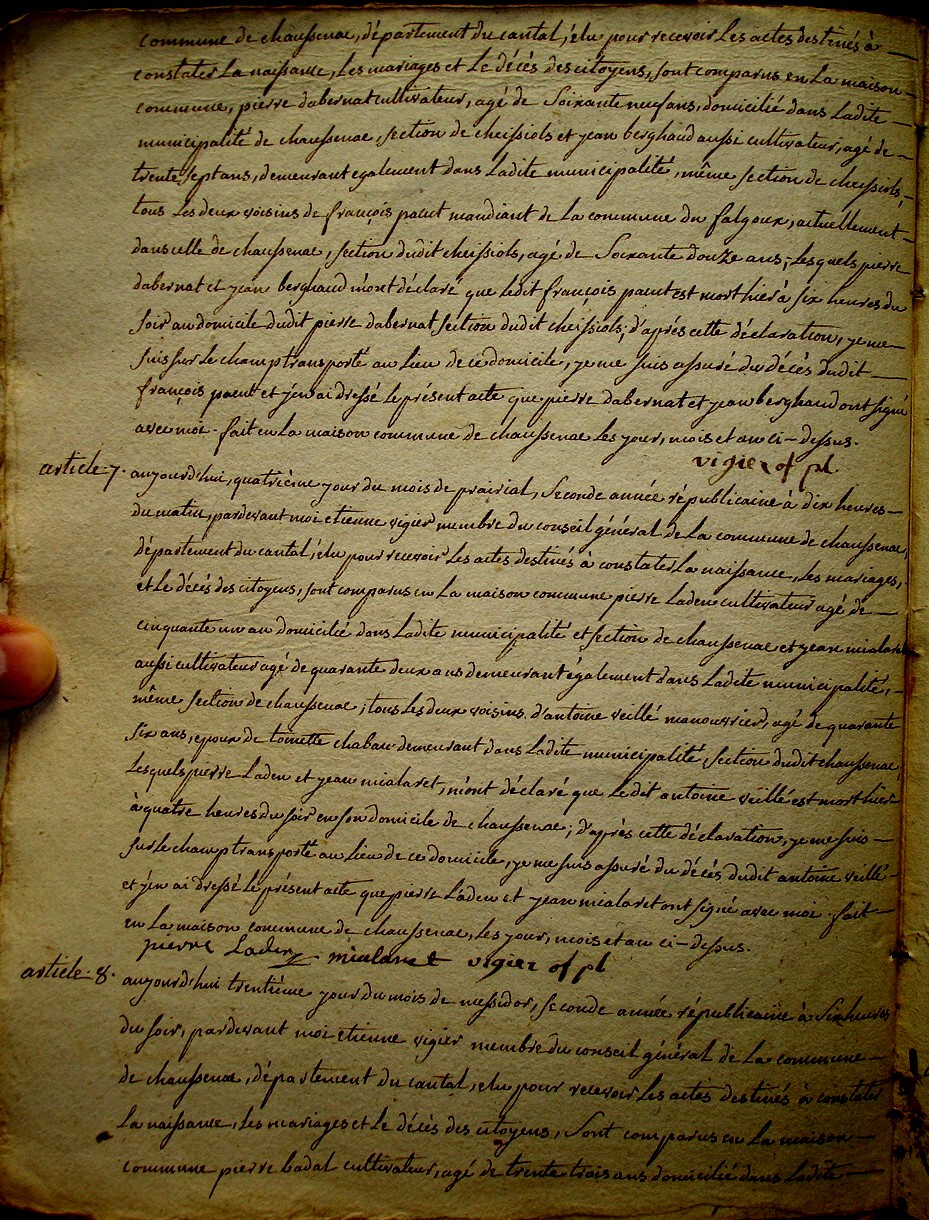 commune de chaussenac, département du cantal, élu pour recevoir Les actes destinés à
constater La naissance, Les mariages et Le décès des citoyens, sont comparus en La maison
commune, pierre dabernat cultivateur, agé de Soixante neuf ans, domicilié dans Ladite
municipalité de chaussenac, section de cheissiols et jean berghaud aussi cultivateur, agé de
trente sept ans, demeurant egalement dans Ladite municipalité, même section de cheissiols,
tous Les deux voisins de françois pacut mandiant de La commune du falgoux, actuellement
dans celle de chaussenac, section dudit cheissiols, agé de Soixante douze ans; Lesquels pierre
dabernat et jean berghaud m'ont déclaré que Ledit françois pacut est mort hier à six heures du
soir au domicile dudit pierre dabernat section dudit cheissiols; d'après cette déclaration, je me
suis sur Le champ transporté au Lieu de ce domicile, je me suis assuré du décès dudit
françois pacut et j'en ai dressé Le présent acte que pierre dabernat et jean berghaud ont signé
avec moi. fait en La maison commune de chaussenac Les jour, mois et an ci-dessus.
vigier of pl
article 7. aujourd'hui, quatrième jour du mois de prairial, Seconde année républicaine à dix heures
du matin, pardevant moi etienne vigier membre du conseil général de La commune de chaussenac,
département du cantal, élu pour recevoir Les actes destinés à constater La naissance, Les mariages,
et Le décès des citoyens, sont comparus en La maison commune pierre Laden cultivateur agé de
cinquante un an domicilié dans Ladite municipalité et section de chaussenac et jean mialaret
aussi cultivateur agé de quarante deux ans demeurant également dans Ladite municipalité,
même section de chaussenac; tous Les deux voisins d'antoine veillé manouvrier, agé de quarante
six ans, epoux de tomette chabau demeurant dans Ladite municipalité, section dudit chaussenac,
Lesquels pierre Laden et jean mialaret, m'ont déclaré que Ledit antoine veillé est mort hier
à quatre heures du soir en son domicile de chaussenac; d'après cette déclaration, je me suis
sur Le champ transporté au Lieu de ce domicile, je me suis assuré du décès dudit antoine veillé
et j'en ai dressé Le présent acte que pierre Laden et jean mialaret ont signé avec moi. fait
en La maison commune de chaussenac, Les jour, mois et an ci-dessus.
pierre Laden mialaret vigier of pl
article 8. aujourd'hui trentième jour du mois de messidor, seconde année républicaine à Six heures
du soir, pardevant moi etienne vigier membre du conseil général de La commune
de chaussenac, département du cantal, elu pour recevoir Les actes destinés à constater
La naissance, Les mariages et Le décès des citoyens, Sont comparus en La maison
commune pierre badal cultivateur, agé de trente trois ans domicilié dans Ladite